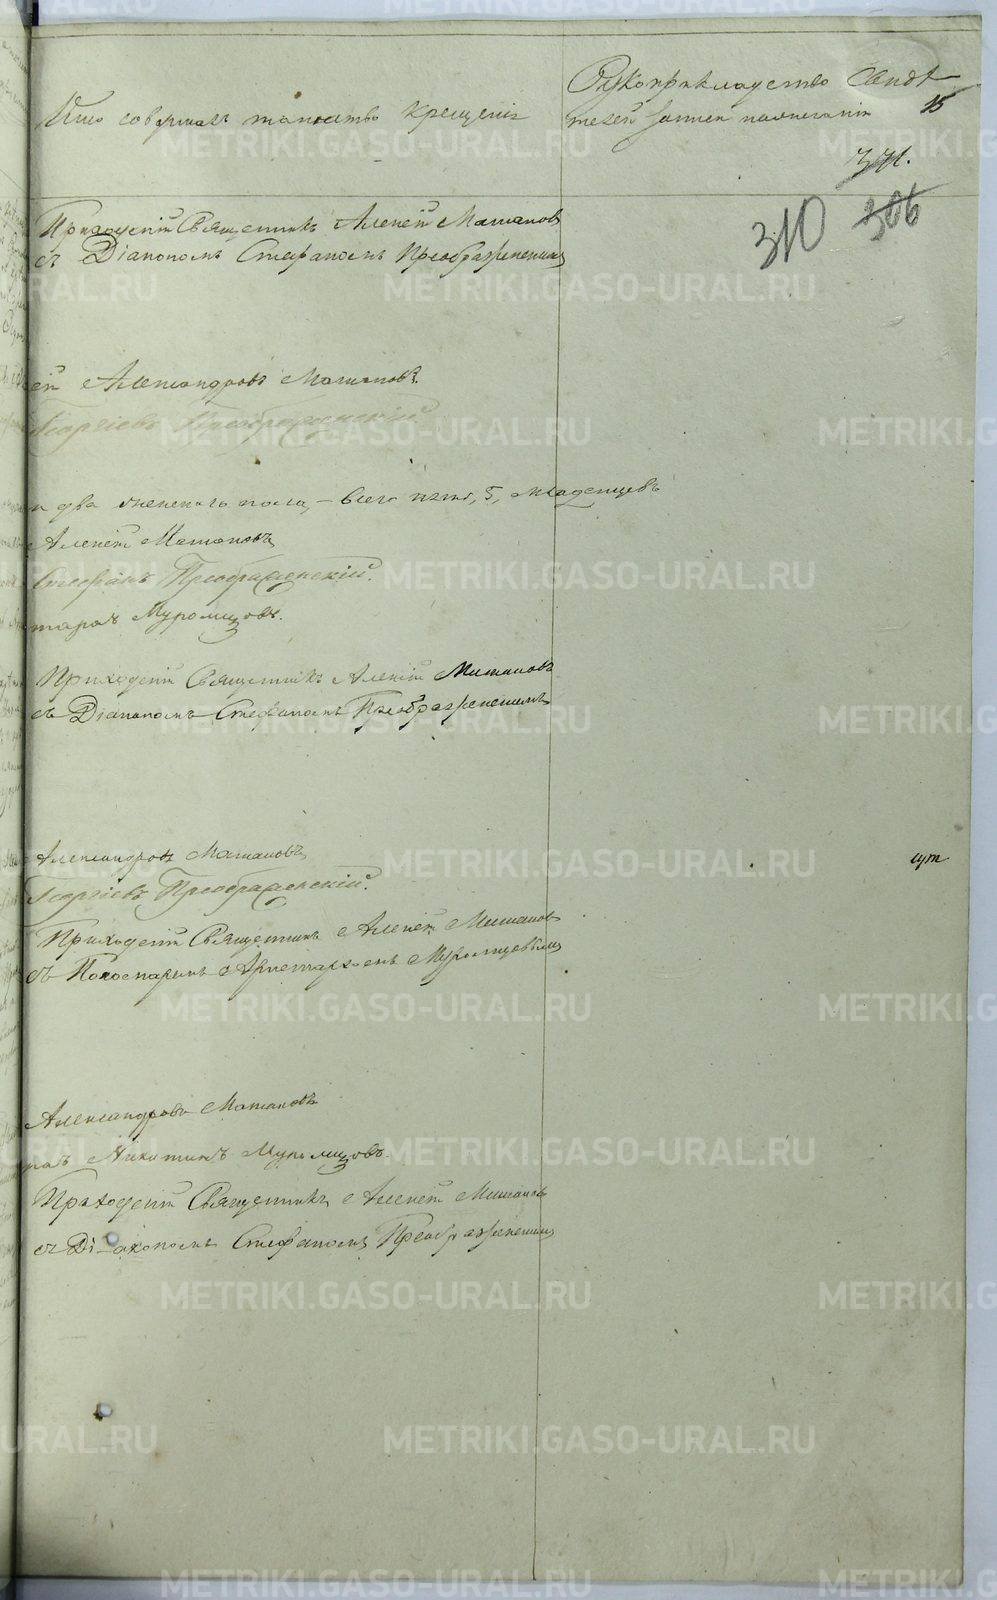 Кто совершалъ таинство крещенія
Рукоприкладство Свидѣ
телей записи по желанію
15
371.
310 306
Приходскій Священникъ Алексѣй Машановъ
съ Діакономъ Стефаномъ Преображенскимъ
ѣй Александровъ Машановъ.
Георгіевъ Преображенскій
и два женскаго пола, – всего пять, 5, младенцевъ
Алексѣй Машановъ
Стефанъ Преображенскій.
тархъ Муромцовъ.
Приходскій Священникъ Алексѣй Машановъ
съ Діакономъ Стефаномъ Преображенскимъ
Александровъ Машановъ
Георгіевъ Преображенскій.
Приходскій Священникъ Алексѣй Машановъ
съ Пономаремъ Аристархомъ Муромцовымъ
Александровъ Машановъ
Никитинъ Муромцовъ.
Приходскій Священникъ Алексѣй Машановъ
съ Діакономъ Стефаномъ Преображенскимъ
METRIKI.GASO-URAL.RU